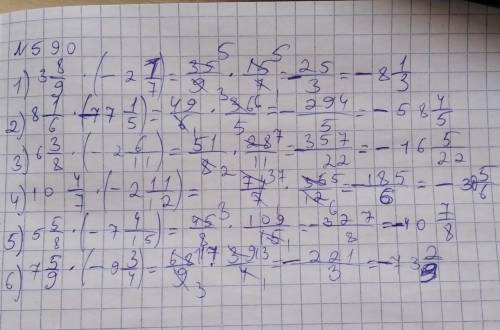 №590
1) 3 8/9 · (- 2 1/7) = 35/9 · 15/7 = - 25/3 = - 8 1/3
2) 8 1/6 · (-7 1/5) = 49/6 · 36/5 = - 294/5 = - 58 4/5
3) 6 3/8 · (- 2 6/11) = 51/8 · 28/11 = - 357/22 = - 16 5/22
4) 10 4/7 · (- 2 11/12) = 74/7 · 35/12 = - 185/6 = - 30 5/6
5) 5 5/8 · (- 7 4/15) = 45/8 · 109/15 = - 327/8 = - 40 7/8
6) 7 5/9 · (- 9 3/4) = 68/9 · 39/4 = - 221/3 = - 73 2/3